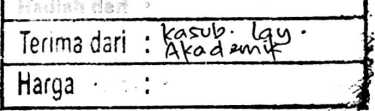 Hadiah dari :
Terima dari : Kasub. Lay.
Akademik
Harga :